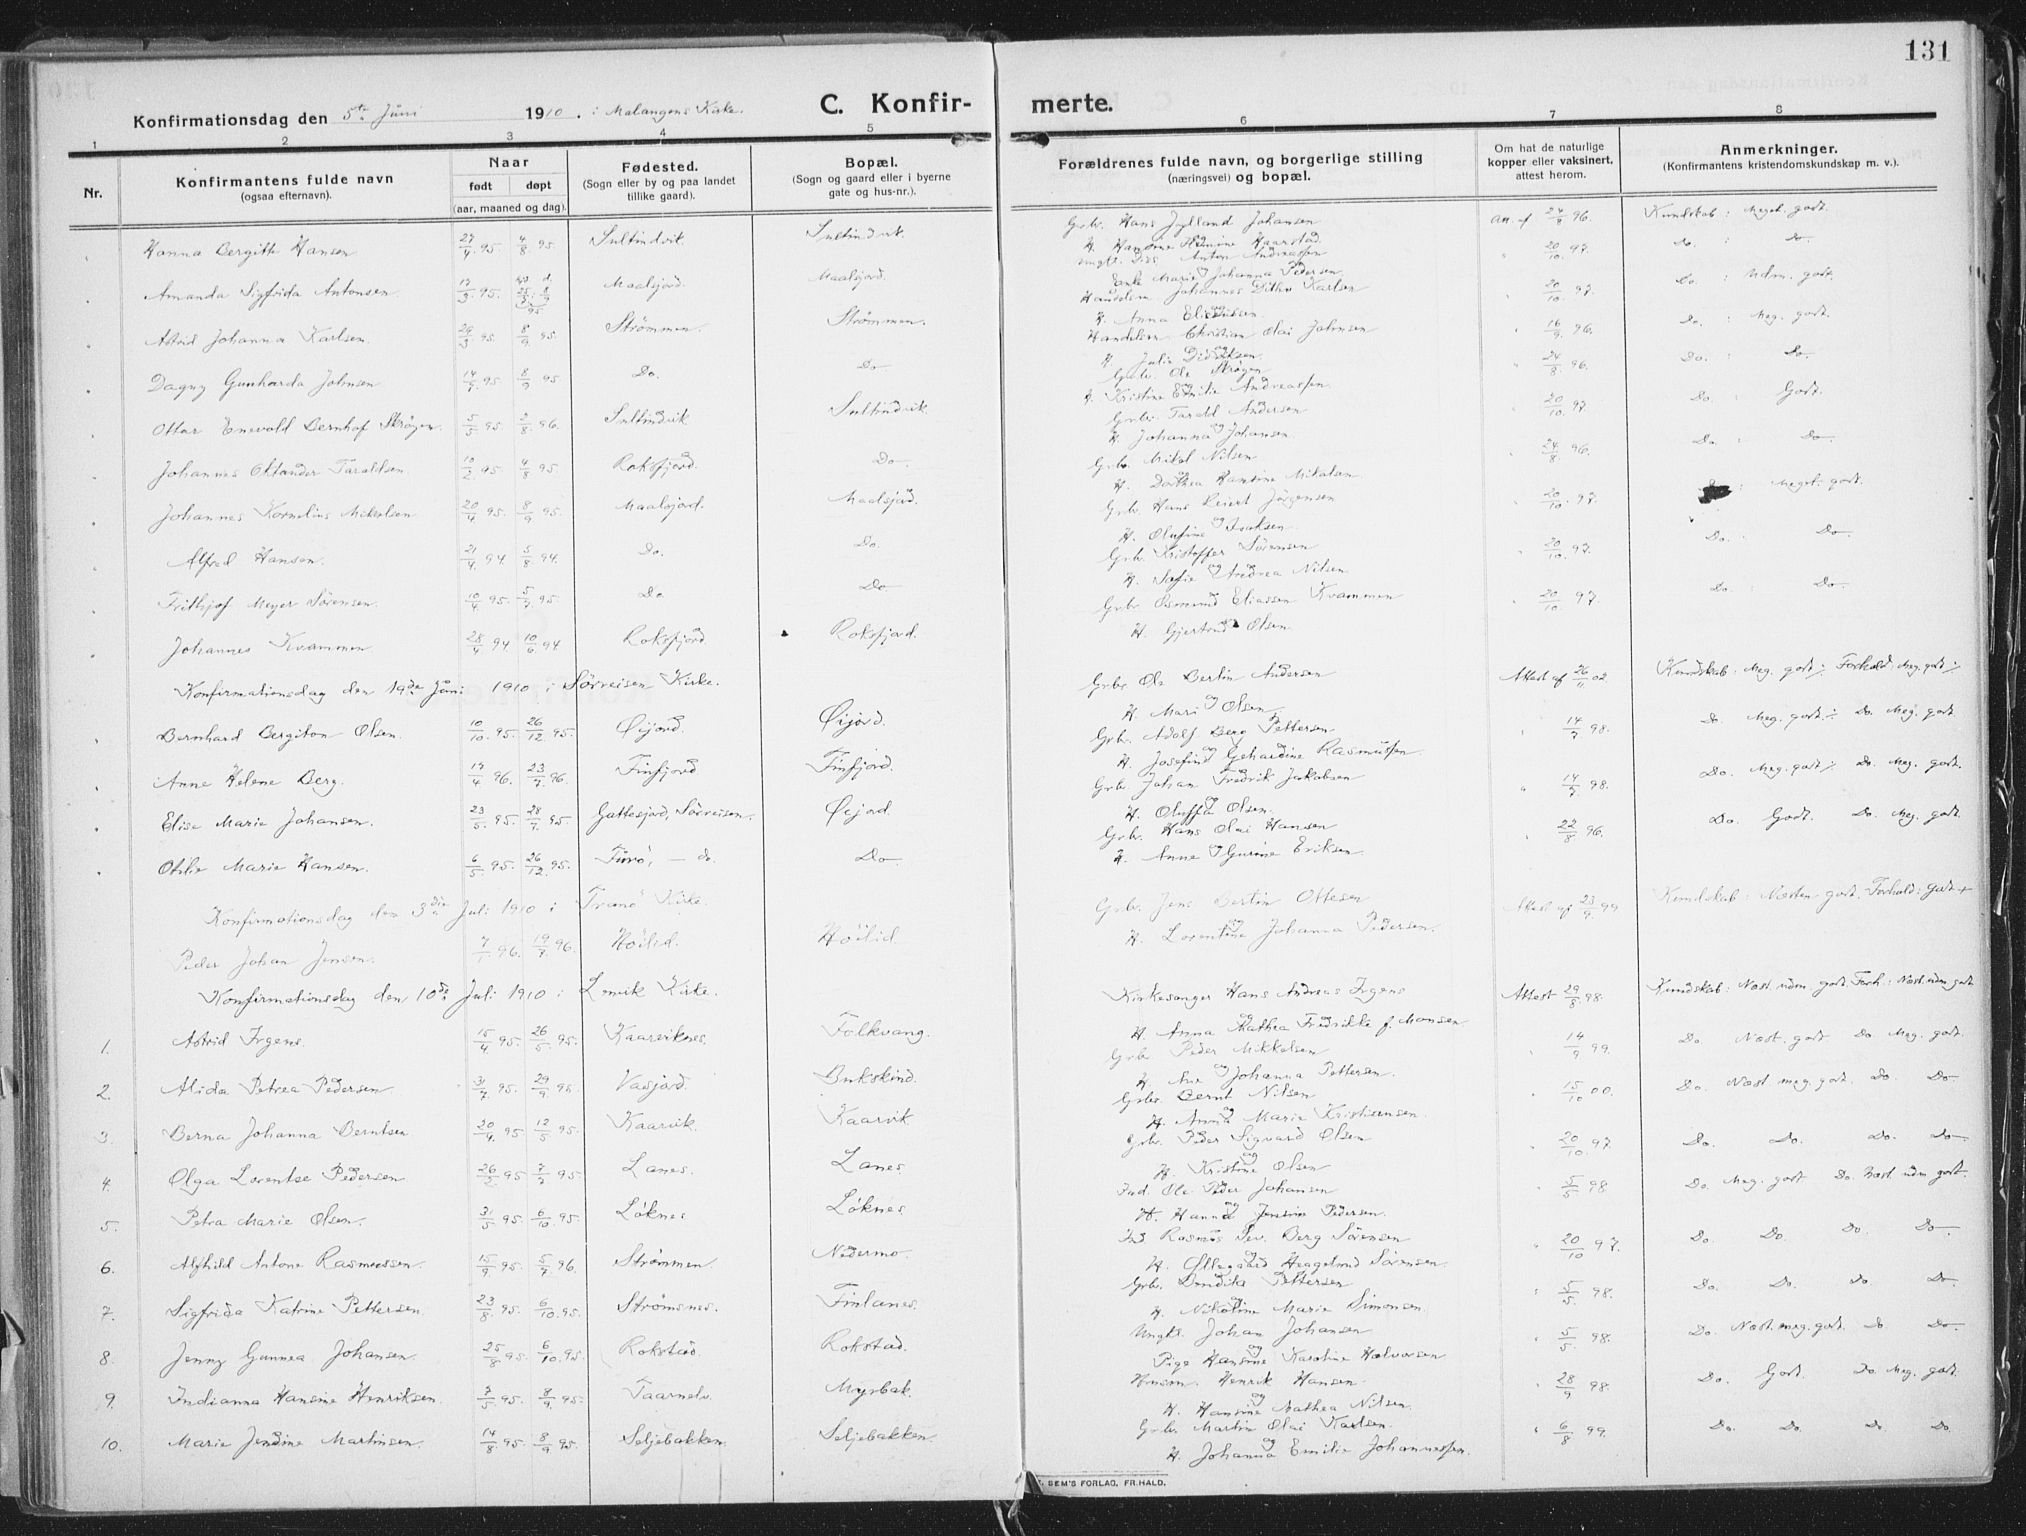 131
Konfirmationsdag den 5te Juni 1910. i Malangens Kirke.
C. Konfirmerte.
1 2 3 4 5 6 7 8
Nr.
Konfirmantens fulde navn (ogsaa efternavn).
Naar født døpt (aar, maaned og dag).
Fødested. (Sogn eller by og paa landet tillike gaard).
Bopæl. (Sogn og gaard eller i byerne gate og hus-nr.).
Forældrenes fulde navn, og borgerlige stilling (næringsvei) og bopæl.
Om hat de naturlige kopper eller vaksinert, attest herom.
Anmerkninger. (Konfirmantens kristendomskundskap m. v.).
Hanna Bergitte Hansen 27/4 95 4/8 95. Sultindvik. Sultindvik. Grbr. Hans Jylland Johansen og H. Hansine Haarstad. Att. af 24/8 96. Kundskab: Meget godt.
Amanda Sigfrida Antonsen. 17/3 95. Maalsjord. Maalsjord. Ungk. Anton Andreassen og Enke Marie Johanna Pedersen. 20/10 97. Do. : Udm. godt.
Astrid Johanna Karlsen. 29/3 95 8/9 95. Strømmen. Strømmen. Handelsm. Johannes Karlsen og H. Anna Eliassen. 20/10 97. Do. : Meg. godt.
Dagny Gunharda Johnsen 14/7 95 8/9 95 Do. Do Handelsm. Christian Olai Johnsen og H. Julie Didriksen. 16/9 96. Do. : Do.
Ottar Enevold Bernhof Skrøgen. 5/5 95 2/8 96. Sultindvik Sultindvik. Grbr. Ole Skrøgen og H. Kristine Emilie Andreassen. 24/8 96. Do. Godt.
Johannes Oktander Taraldsen. 10/2 95 4/8 95. Roksfjord. Do. Grbr. Tarald Andersen og H. Johanna Johansen. 20/10 97. Do. : Do.
Johannes Kornelius Mikalsen 20/4 95. 8/9 95. Maalsjord. Maalsjord. Grbr. Mikal Nilsen H. Dorthea Hansine Mikalsen 24/8 96. : Meget godt.
Alfred Hansen. 21/4 94 5/8 94. Do. Do. Grbr. Hans Jørgensen og H. Olufine Isaksen. 20/10 97. Do. : Do.
Frithjof Meyer Sørensen. 10/4 95. 5/7 95. Do Do Grbr. Kristoffer Sørensen og H. Sofie Andrea Nilsen 20/10 97. Do : Do.
Johannes Kvammen 28/4 94 10/6 94 Roksfjord. Roksfjord. Grbr. Osmund Eliassen Kvammen H. Gjertrud Olsen 20/10 97.
Konfirmationsdag den 19de Juni 1910 i Sørreisen Kirke.
Bernhard Bergiton Olsen. 10/10 95. 26/12 95. Øijord. Øijord. Grbr. Ole Bertin Andersen og H. Mari Olsen Attest af 26/11 02. Kundskab: Meg. godt ; Forhold: Meg. godt
Anne Helene Berg. 17/4 96. 23/7 96. Finfjord Finfjord. Grbr. Adolf Berg Pettersen og H. Josefind Gehardine Rasmussen. 14/7 98. Do. Meg. godt. Do. Meg. godt
Elise Marie Johansen. 23/5 95. 28/7 95. Gottesjord, Sørreisen. Øijord. Grbr. Johan Fredrik Jakobsen og H. Oluffa Olsen. 14/7 98. Do. Meg. godt. Do. Meg. godt.
Otilie Marie Hansen. 6/5 95. 26/12 95. Furø, — do. Do Grbr. Hans Olai Hansen og H. Anne Gurine Eriksen. 22/8 96. Do. Godt. Do. Meg. godt.
Konfirmationsdag den 3die Juli 1910 i Tranø Kirke.
Peder Johan Jensen. 7/1 96. 19/7 96. Høilid. Høilid. Grbr. Jens Bertin Ottesen og H. Lorentine Johanna Pedersen. Attest af 23/9 99 Kundskab: Næsten godt. Forhold: Godt +
Konfirmationsdag den 10de Juli 1910 i Lenvik Kirke.
1. Astrid Irgens. 15/4 95. 26/5 95. Kaarviknes. Folkvang. Kirkesanger Hans Andreas Irgens og H. Anna Mathea Fredrikke f. Monsen Attest 29/8 98. Kundskab: Næst. udm. godt. Forh.: Næst. udm. godt
2. Alida Petrea Pedersen. 31/7 95. 29/9 95. Vasjord. Bukskind. Grbr. Peder Mikkelsen og H. Ane Johanna Pettersen. 14/9 99. Do. Næst. godt Do Meg. godt
3. Berna Johanna Berntsen 20/4 95 12/5 95. Kaarvik. Kaarvik Grbr. Bernt Nilsen og H. Anna Marie Kristiansen. 15/10 00. Do. Næst. meg. godt. Do. Do.
4. Olga Lorentse Pedersen 26/2 95 7/7 95. Lanes. Lanes Grbr. Peder Sigvard Olsen og H. Kristine Olsen 20/10 97 Do. Do. Do. Do.
5. Petra Marie Olsen. 31/5 95. 6/10 95. Løknes Løknes Ind. Ole Peder Johansen og H. Hanna Jensine Pedersen. 5/5 98 Do. Meg. godt Do. Næst. udm. godt.
6. Alfhild Antone Rasmussen. 15/9 95. 5/7 96. Strømmen Nedermo. Ind. Rasmus Sev. Berg Sørensen og H. Ollegaard Heggelund Sørensen. 20/10 97. Do. Do. Do. Do.
7. Sigfrida Katrine Pettersen. 23/8 95. 6/10 95. Strømsnes. Finlanes. Grbr. Bendikt Pettersen og H. Nikoline Marie Simonsen. 5/5 98. Do. Do. Do Do
8. Jenny Gunnea Johansen. 25/8 95. 6/10 95. Rokstad. Rokstad. Ungk. Johan Johansen og Pige Hansine Karoline Halvorsen 5/5 98. Do. Næst. meg. godt. Do Do.
9. Indianna Hansine Henriksen. 7/5 95. 8/9 95. Taarnelv. Myrbak. Husm. Henrik Hansen. og H. Hansine Mathea Nilsen. 28/9 98. Do. Godt. Do. Meg. godt.
10. Marie Jendine Martinsen. 14/8 95. 8/9 95. Seljebakken Seljebakken. Grbr. Martin Olai Karlsen. og H. Johanna Emilie Johannessen. 6/8 99. Do. Do. Do Do.
SEM'S FORLAG, FR.HALD.